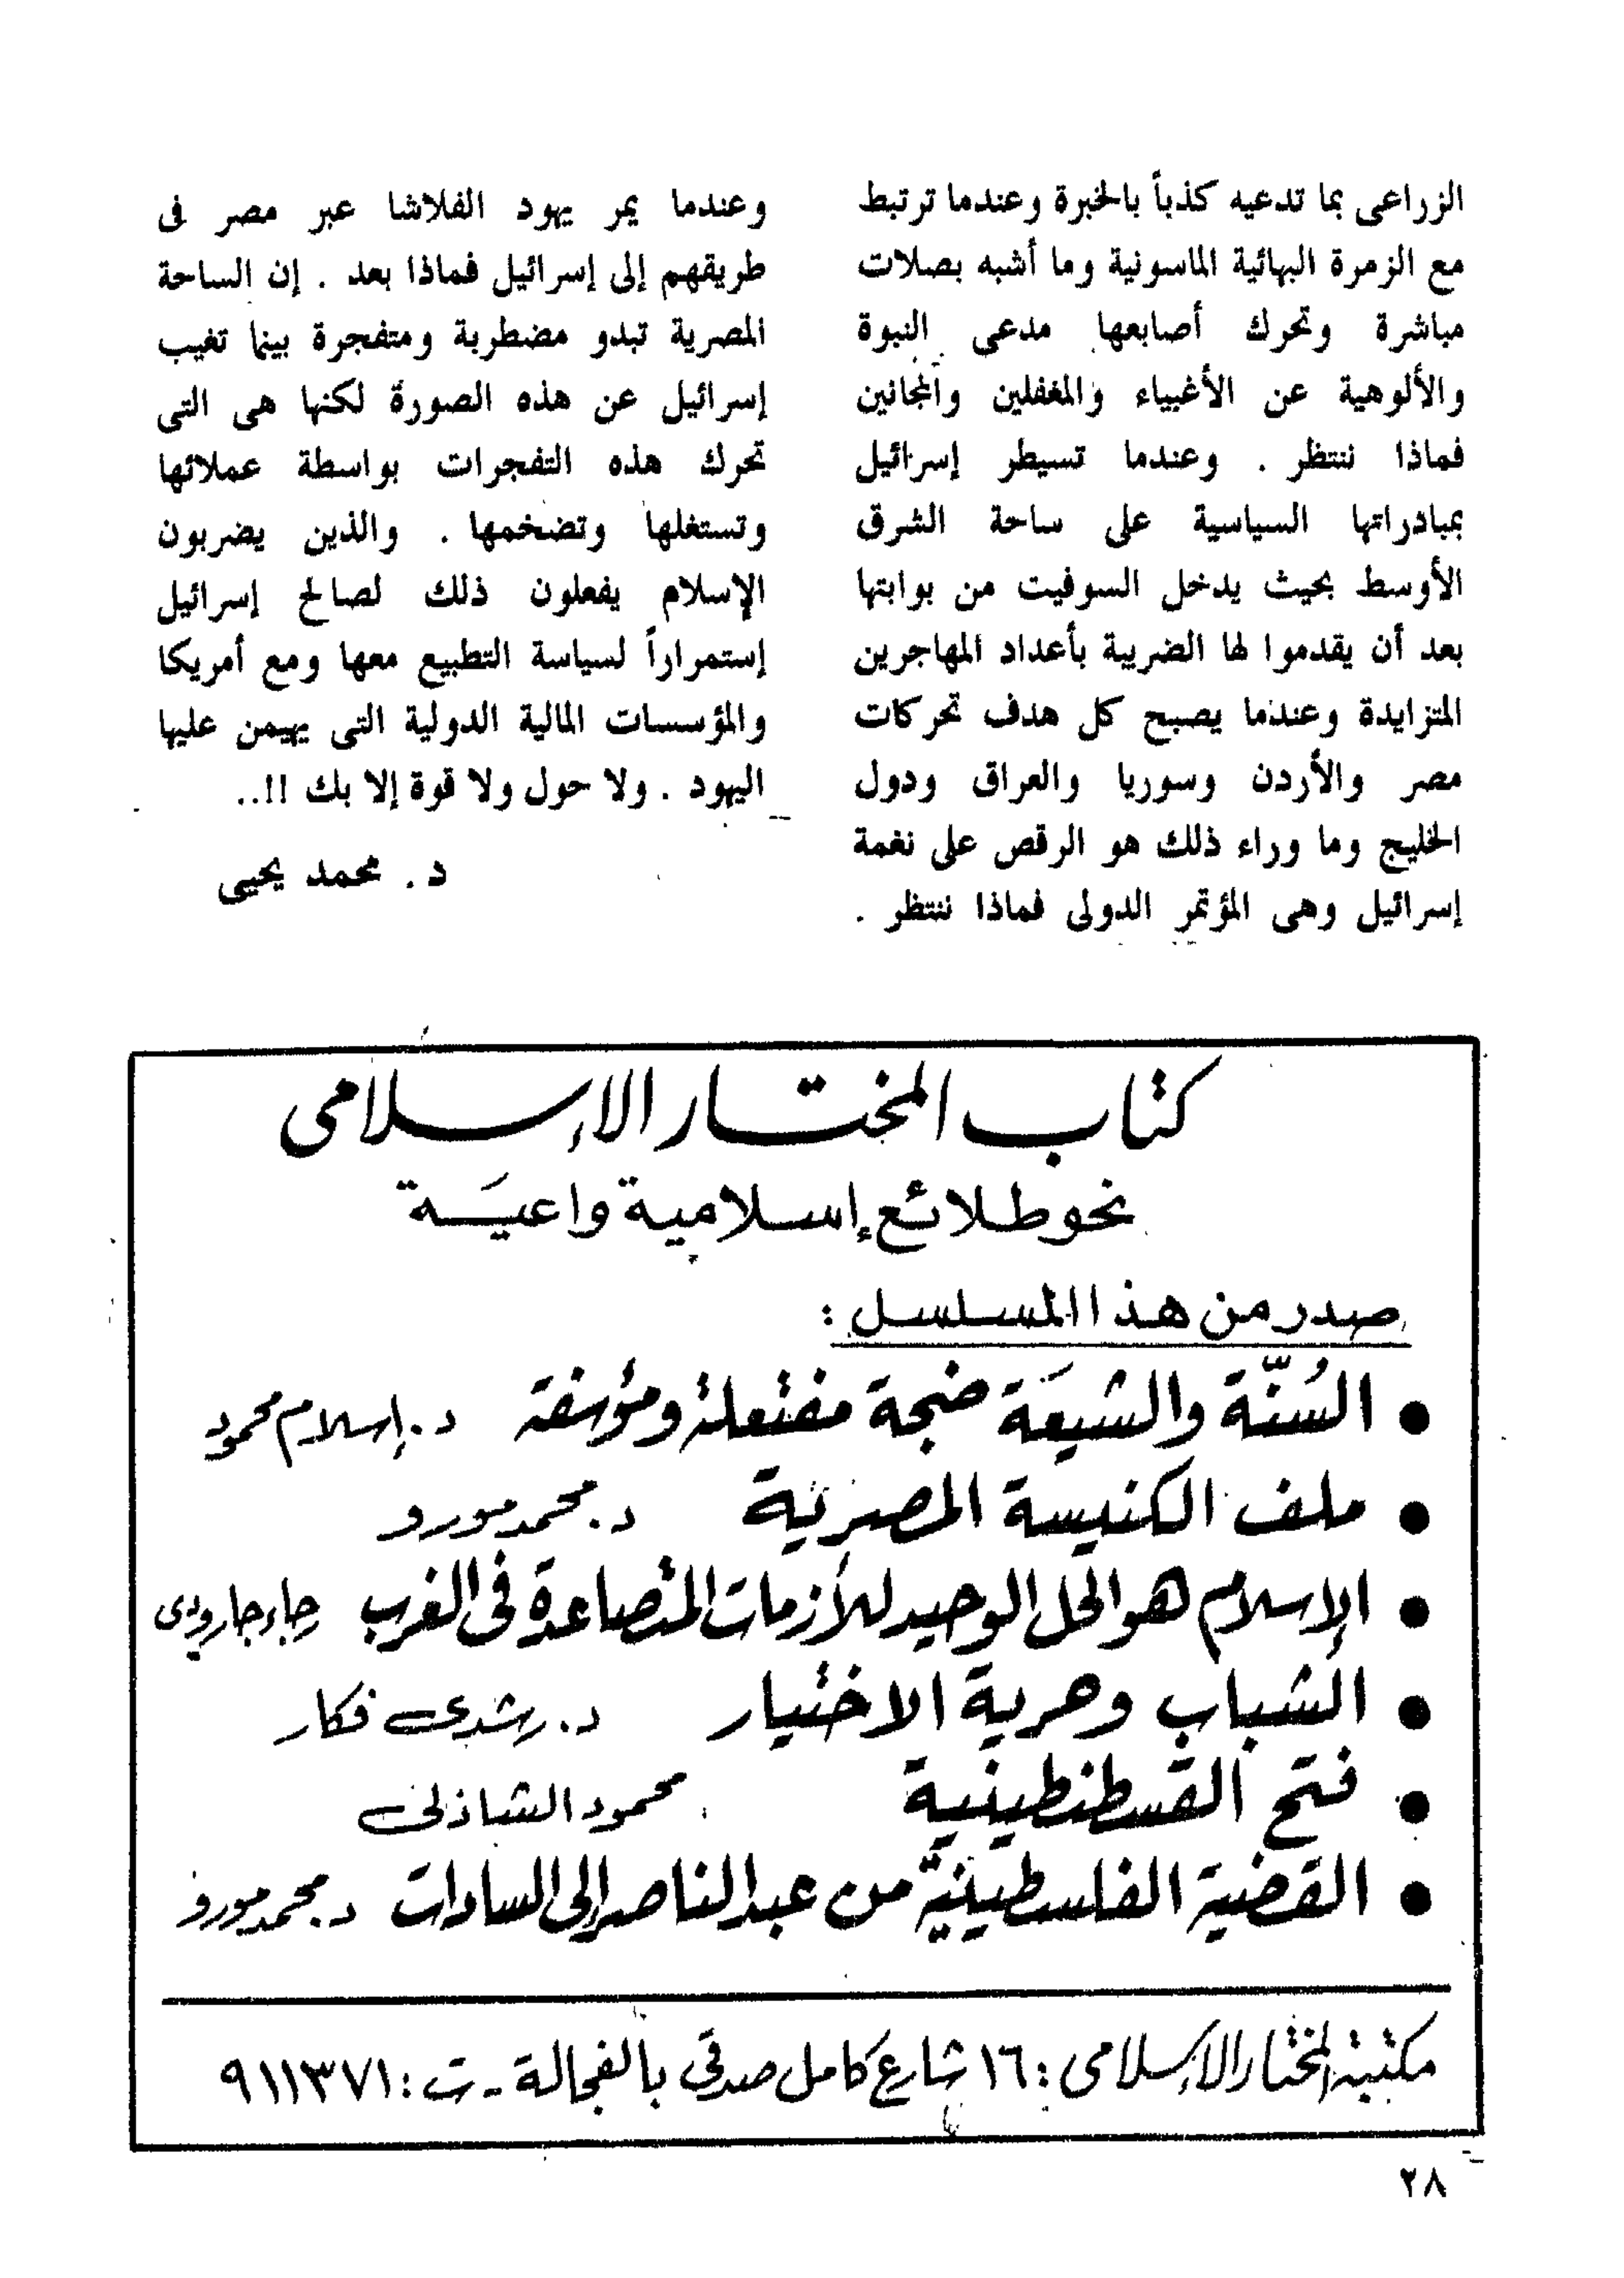 الزراعى بما تدعيه كذباً بالخبرة وعندما ترتبط
مع الزمرة البهائية الماسونية وما أشبه بصلات
مباشرة وتحرك أصابعها مدعى النبوة
والألوهية عن الأغبياء والمغفلين والمجانين
فماذا ننتظر . وعندما تسيطر إسرائيل
بمبادراتها السياسية على ساحة الشرق
الأوسط بحيث يدخل السوفيت من بوابتها
بعد أن يقدموا لها الضريبة بأعداد المهاجرين
المتزايدة وعندما يصبح كل هدف تحركات
مصر والأردن وسوريا والعراق ودول
الخليج وما وراء ذلك هو الرقص على نغمة
إسرائيل وهى المؤتمر الدولى فماذا ننتظر .
وعندما يمر يهود الفلاشا عبر مصر فى
طريقهم إلى إسرائيل فماذا بعد . إن الساحة
المصرية تبدو مضطربة ومتفجرة بينما تغيب
إسرائيل عن هذه الصورة لكنها هى التى
تحرك هذه التفجرات بواسطة عملائها
وتستغلها وتضخمها . والذين يضربون
الإسلام يفعلون ذلك لصالح إسرائيل
إستمراراً لسياسة التطبيع معها ومع أمريكا
والمؤسسات المالية الدولية التى يهيمن عليها
اليهود . ولا حول ولا قوة إلا بك !!..
د . محمد يحيى
كتاب المختار الإسلامى
نحو طلائع إسلامية واعيَة
صدر من هذا المسلسل :
• السُنّة والشيعَة ضجة مفتعلة ومؤسفة د. إسلام محمود
• ملف الكنيسة المصرية د. محمد مورو
• الإسلام هو الحل الوحيد للأزمات المتصاعدة فى الغرب رجاء جارودى
• الشباب وحرية الاختيار د. رشدى فكار
• فتح القسطنطينية محمود الشاذلى
• القضية الفلسطينية من عبد الناصر إلى السادات د. محمد مورو
مكتبة المختار الإسلامى : ١٦ شارع كامل صدقى بالفجالة - ت : ٩١١٣٧١
٢٨